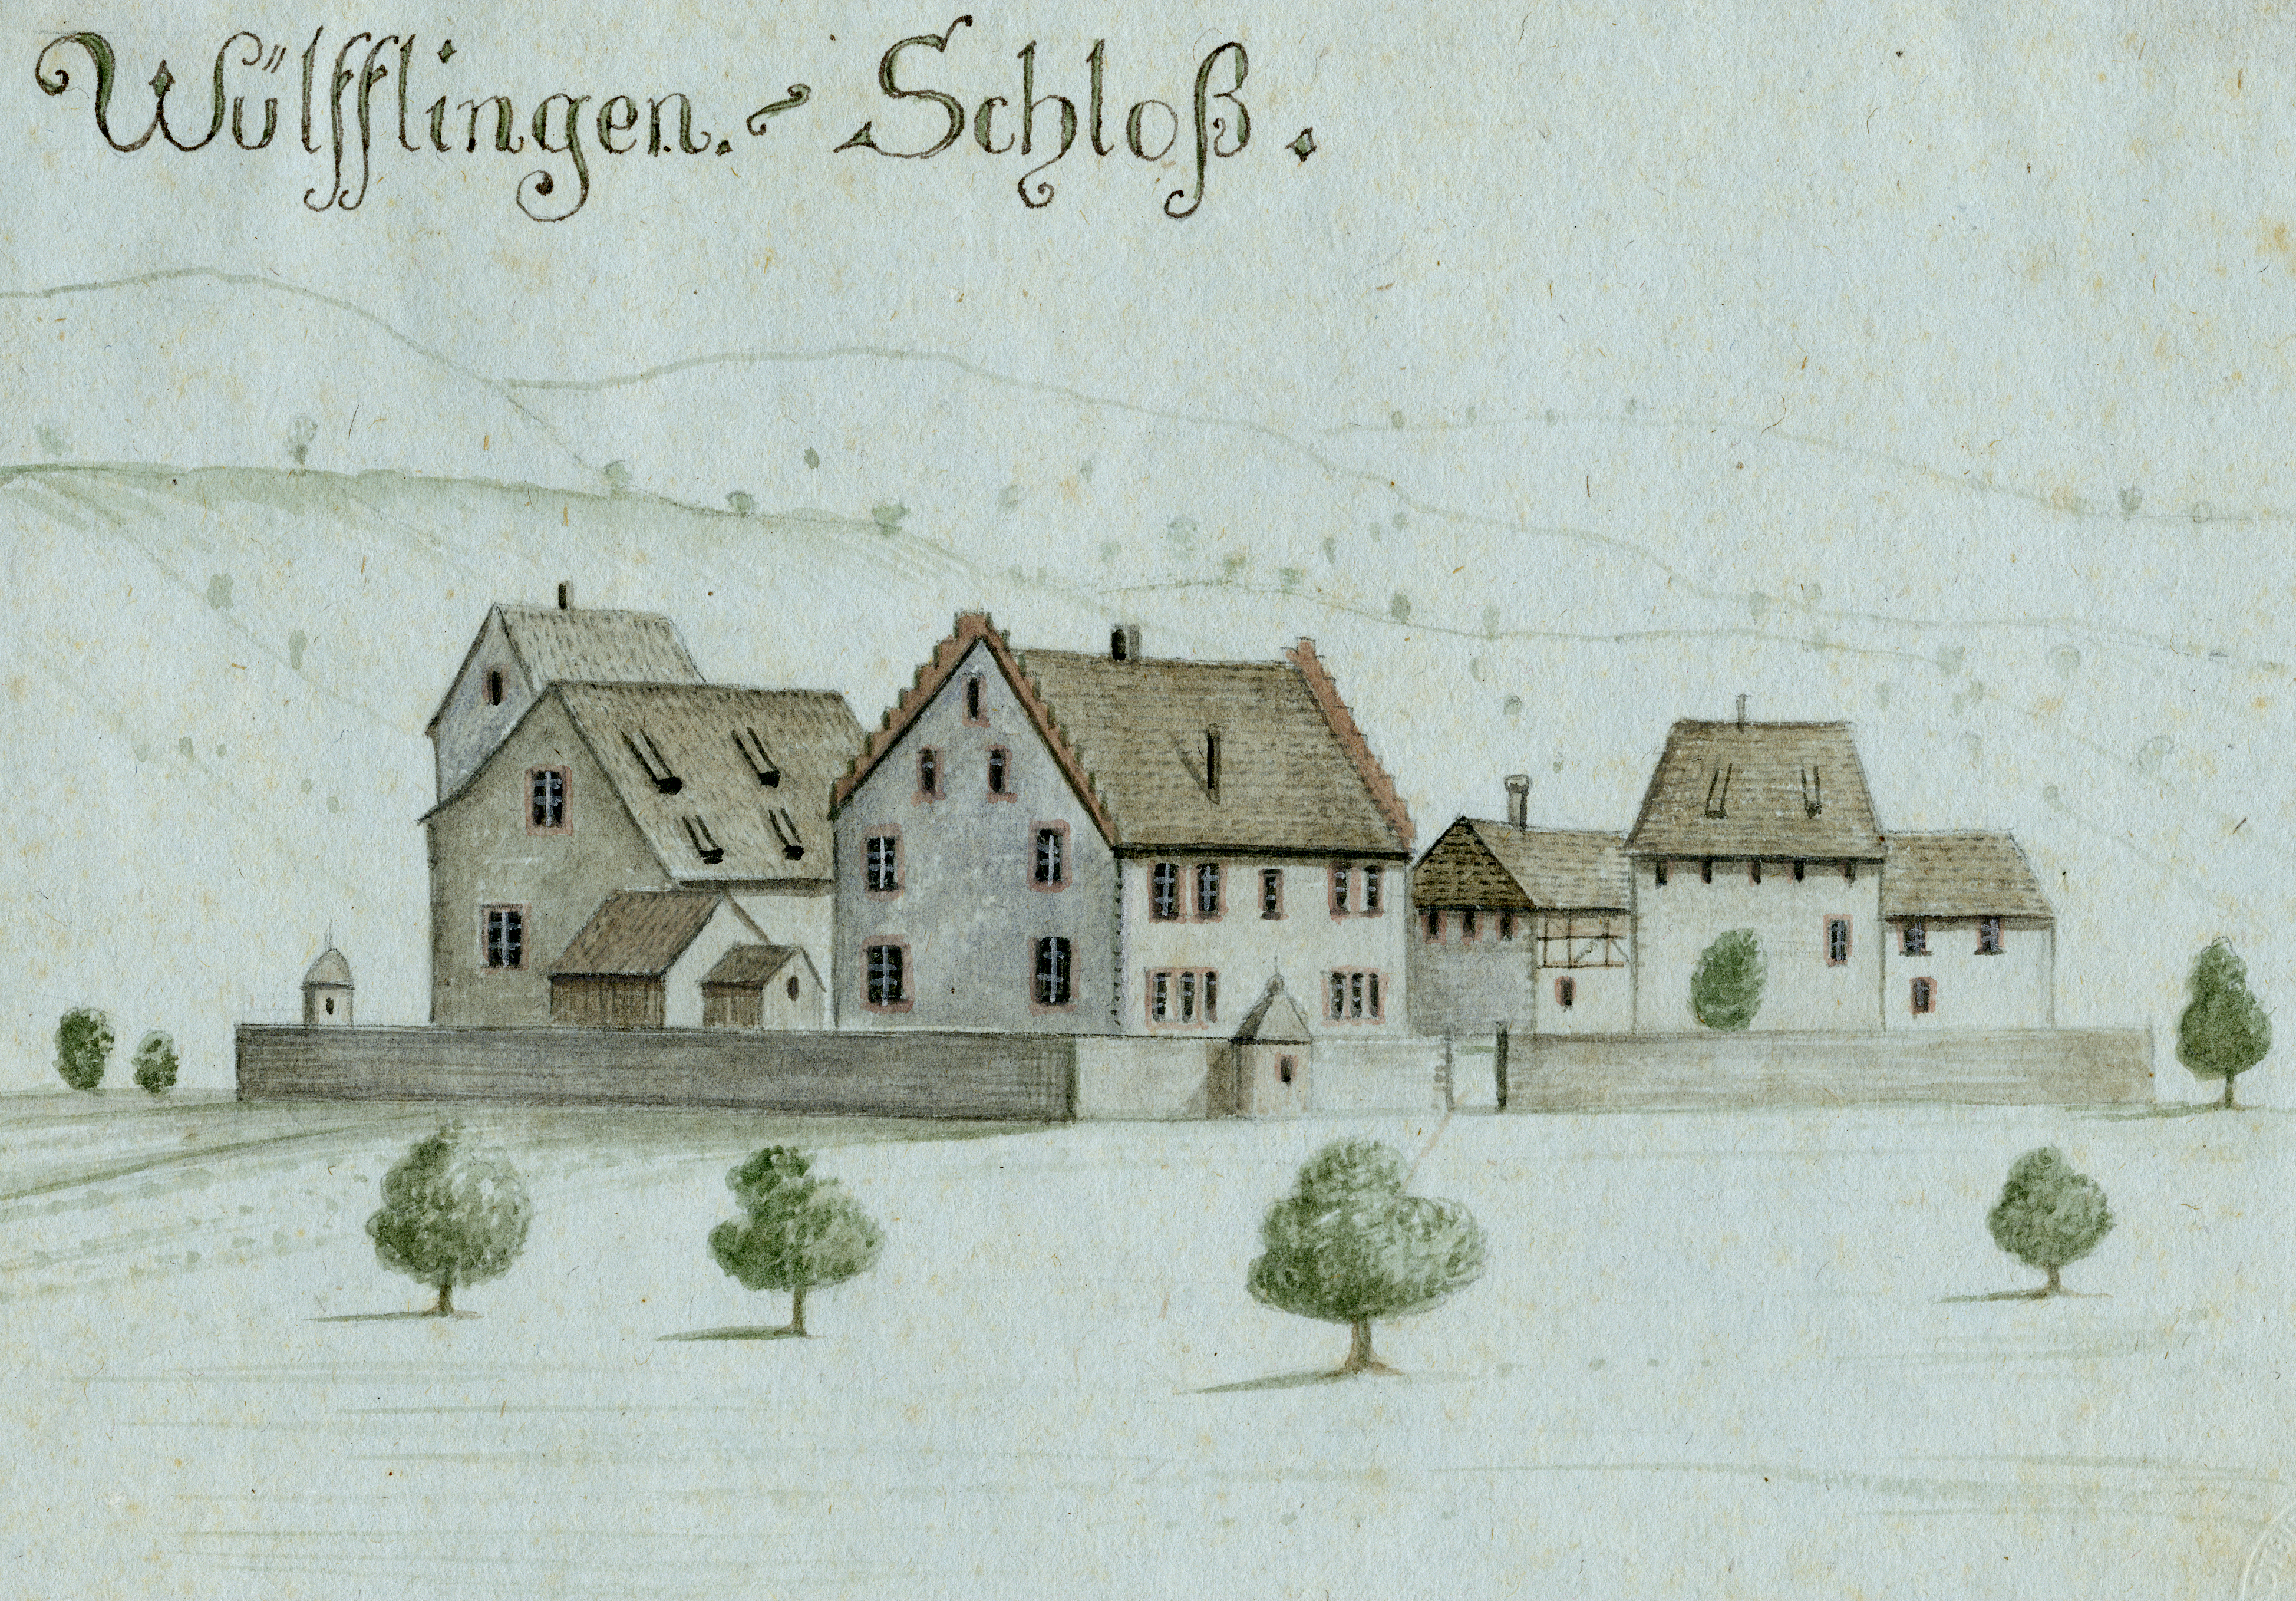 Wülfflingen. - Schloß.